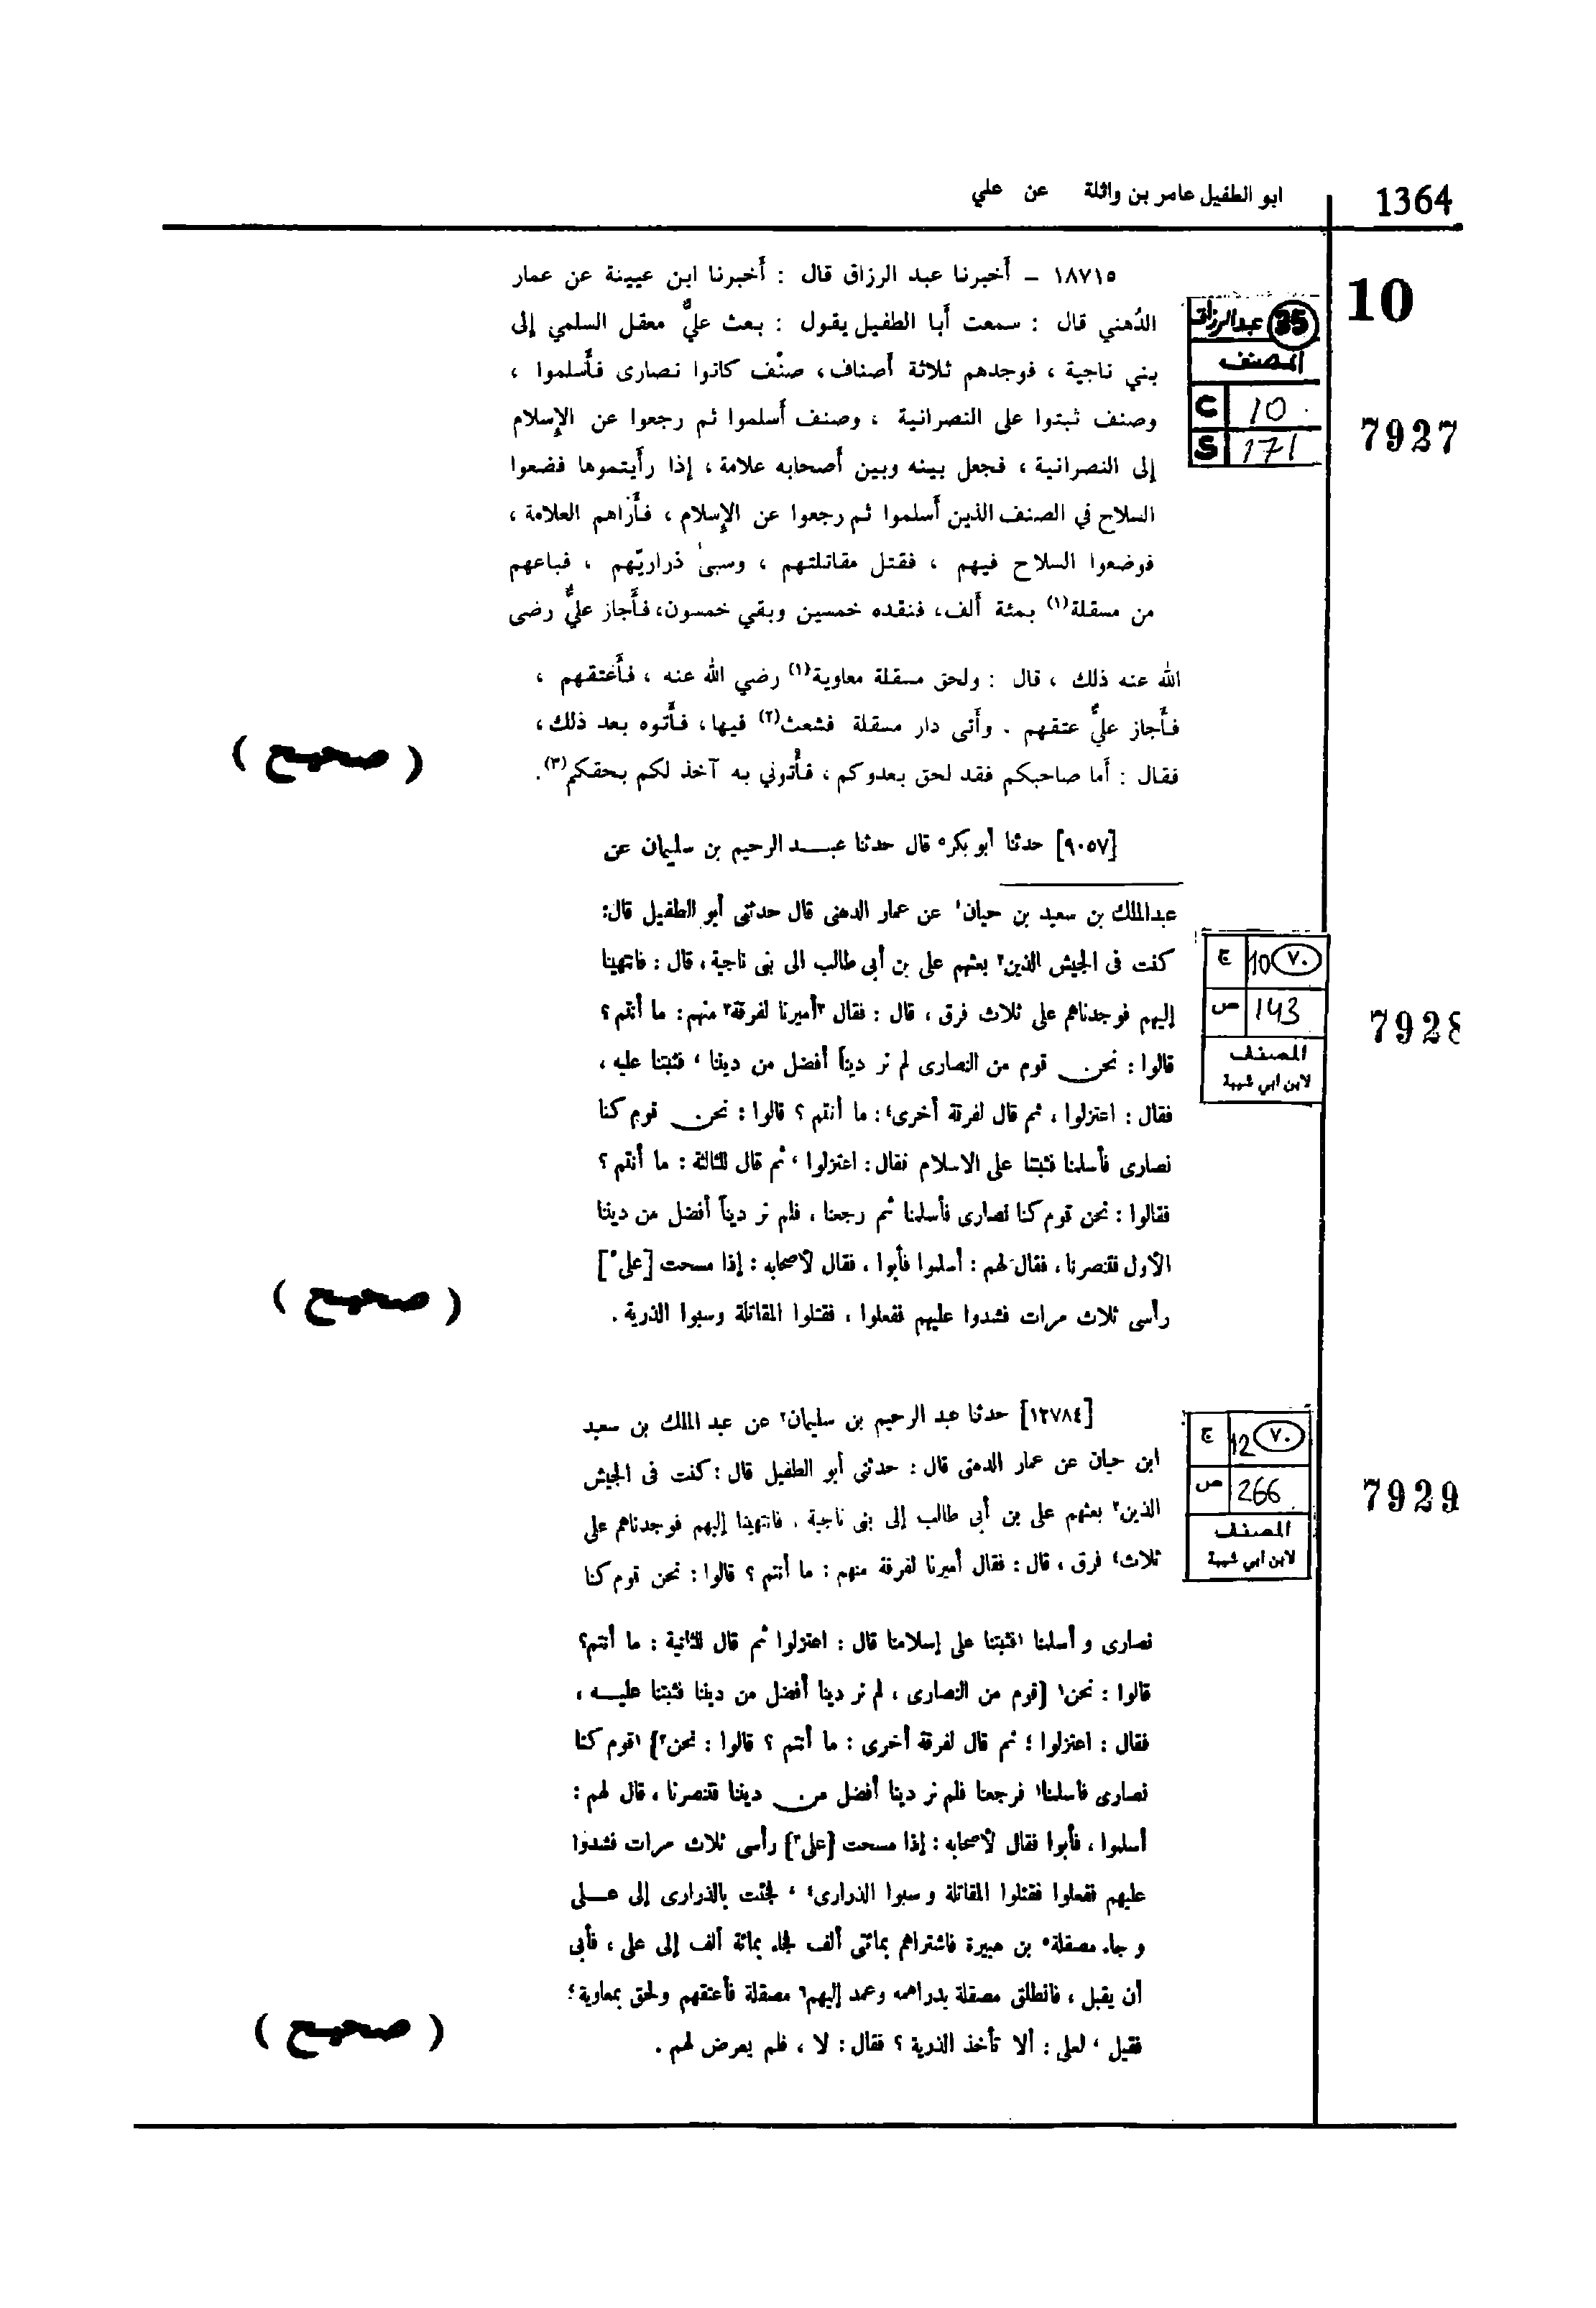 ابو الطفيل عامر بن واثلة عن علي
1364
10
١٨٧١٥ – أَخبرنا عبد الرزاق قال : أَخبرنا ابن عيينة عن عمار
الدُهني قال : سمعت أَبا الطفيل يقول : بعث عليٌّ معقل السلمي إلى
بني ناجية ، فوجدهم ثلاثة أَصناف، صنْف كانوا نصارى فأَسلموا ،
وصنف ثبتوا على النصرانية ، وصنف أَسلموا ثم رجعوا عن الإِسلام
إلى النصرانية ، فجعل بينه وبين أَصحابه علامة ، إذا رأَيتموها فضعوا
السلاح في الصنف الذين أَسلموا ثم رجعوا عن الإِسلام ، فأَراهم العلامة ،
فوضعوا السلاح فيهم ، فقتل مقاتلتهم ، وسبىٰ ذراريّهم ، فباعهم
من مسقلة(١) بمئة أَلف، فنقده خمسين وبقي خمسون، فأَجاز عليٌّ رضى
الله عنه ذلك ، قال : ولحق مسقلة معاوية(١) رضي الله عنه ، فأَعتقهم ،
فأَجاز عليٌّ عتقهم . وأَتى دار مسقلة فشعث(٢) فيها، فأَتوه بعد ذلك،
فقال : أَما صاحبكم فقد لحق بعدوكم ، فأْتوني به آخذ لكم بحقكم(٣).
( صحيح )
35 عبدالرزاق
المصنف
C 10
S 171
7927
[٩٠٥٧] حدثنا أبو بكر٥ قال حدثنا عبد الرحيم بن سليمان عن
عبدالملك بن سعيد بن حيان١ عن عمار الدهنى قال حدثنى أبو الطفيل قال:
كنت فى الجيش الذين٢ بعثهم على بن أبي طالب الى بنى ناجية، قال : فانتهينا
إليهم فوجدناهم على ثلاث فرق ، قال : فقال ٣أميرنا لفرقة٣ منهم: ما أنتم ؟
قالوا : نحن قوم من النصارى لم نر ديناً أفضل من ديننا ، فثبتنا عليه ،
فقال : اعتزلوا ، ثم قال لفرقة أخرى٤: ما أنتم ؟ قالوا : نحن قوم كنا
نصارى فأسلمنا فثبتنا على الاسلام فقال: اعتزلوا ، ثم قال للثالثة : ما أنتم ؟
فقالوا : نحن قوم كنا نصارى فأسلمنا ثم رجعنا ، فلم نر ديناً أفضل من ديننا
الأول فتنصرنا ، فقال لهم : أسلموا فأبوا ، فقال لأصحابه : إذا مسحت [على٥]
رأسى ثلاث مرات فشدوا عليهم ففعلوا ، فقتلوا المقاتلة وسبوا الذرية .
( صحيح )
٧٠ ج 10
ص 143
المصنف
لابن ابي شيبة
7928
[١٢٧٨٤] حدثنا عبد الرحيم بن سليمان٢ عن عبد الملك بن سعيد
ابن حيان عن عمار الدهنى قال : حدثنى أبو الطفيل قال : كنت فى الجيش
الذين٣ بعثهم على بن أبى طالب إلى بنى ناجية . فانتهينا إليهم فوجدناهم على
ثلاث٤ فرق ، قال : فقال أميرنا لفرقة منهم : ما أنتم ؟ قالوا : نحن قوم كنا
نصارى و أسلمنا ١فثبتنا على إسلامنا قال : اعتزلوا ثم قال للثانية : ما أنتم؟
قالوا : نحن١ [قوم من النصارى ، لم نر دينا أفضل من ديننا فثبتنا عليه ،
فقال : اعتزلوا ؛ ثم قال لفرقة أخرى : ما أنتم ؟ قالوا : نحن٢] ١قوم كنا
نصارى فأسلمنا١ فرجعنا فلم نر دينا أفضل من ديننا فتنصرنا ، قال لهم :
أسلموا ، فأبوا فقال لأصحابه : إذا مسحت [على٣] رأسى ثلاث مرات فشدوا
عليهم ففعلوا فقتلوا المقاتلة و سبوا الذرارى٤ ، فجئت بالذرارى إلى على
و جاء مصقلة٥ بن هبيرة فاشتراهم بمائتى ألف فجاء بمائة ألف إلى على ، فأبى
أن يقبل ، فانطلق مصقلة بدراهمه وعمد إليهم٦ مصقلة فأعتقهم ولحق بمعاوية ؛
فقيل ، لعلى : ألا تأخذ الذرية ؟ فقال : لا ، فلم يعرض لهم .
( صحيح )
٧٠ ج 12
ص 266
المصنف
لابن ابي شيبة
7929